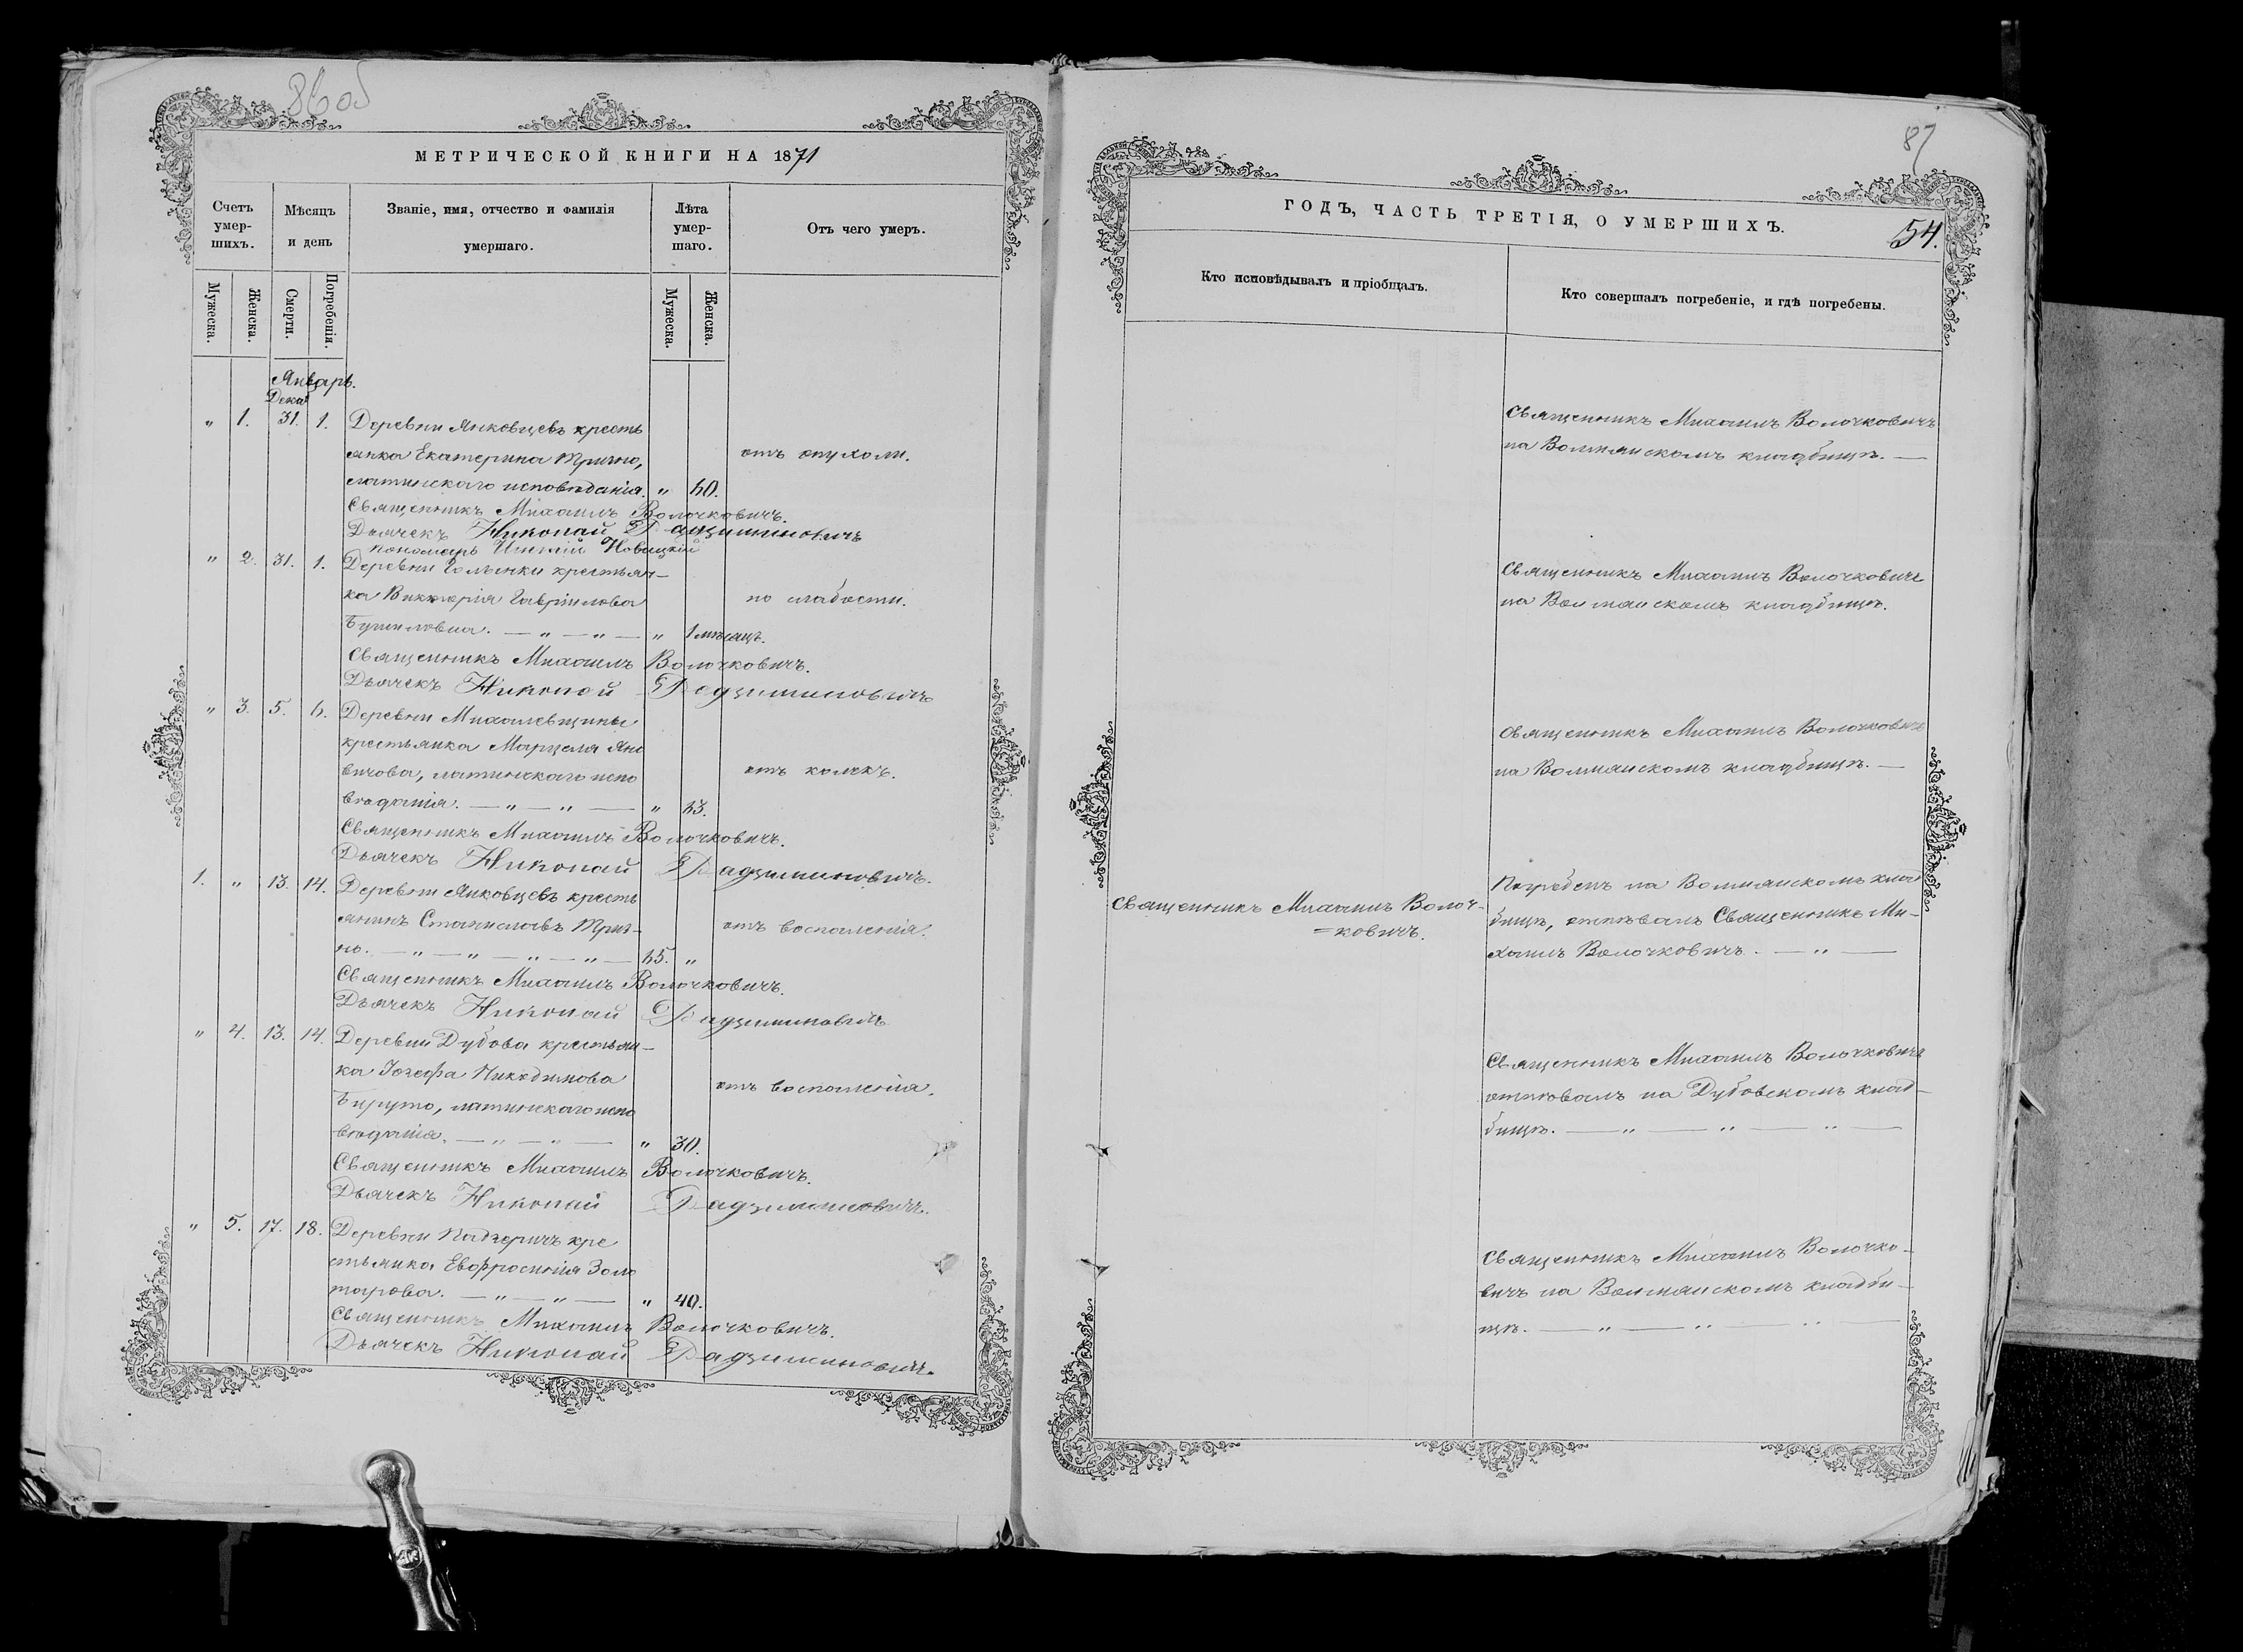 86об
МЕТРИЧЕСКОЙ КНИГИ НА 1871
Счетъ умер-шихъ.
Мѣсяцъ и день
Званіе, имя, отчество и фамилія умершаго.
Лѣта умер-шаго.
Отъ чего умеръ.
Мужеска.
Женска.
Смерти.
Погребенія.
Мужеска.
Женска.
Январь.
Декаб
" 1. 31. 1. Деревни Янковцевъ кресть
янка Екатерина Тричто, отъ опухоли.
латинскаго исповѣданія. "
Священникъ Михаилъ Волочковичъ.
Дьячекъ Николай Радзиминовичъ
пономарь Новицкій
" 2. 31. 1. Деревни Голынки крестьян-
ка Викторія Гавріилова по слабости.
" 1 мѣсяцъ.
Священникъ Михаилъ Волочковичъ.
Дьячекъ Николай Радзиминовичъ
" 3. 5. 6. Деревни Михалевщины
крестьянка Марцеля Яно
вичова, латинскаго испо отъ колекъ.
вѣданія. — " — " — "
Священникъ Михаилъ Волочковичъ.
Дьячекъ Николай Радзиминовичъ.
1. " 13. 14. Деревни Янковцевъ кресть
янинъ Станиславъ отъ воспаленія.
но. — " — " — " — " —
Священникъ Михаилъ Волочковичъ.
Дьячекъ Николай Радзиминовичъ
" 4. 13. 14. Деревни Дубова крестьян-
ка Іозефа Никодимова отъ воспаленія.
латинскаго испо
вѣданія. — " — " — " 30.
Священникъ Михаилъ Волочковичъ.
Дьячекъ Николай Радзиминовичъ.
" 5. 17. 18. Деревни Падчеричъ кре
стьянка Евфросинія Золо
тарова. — " — " — " 40.
Священникъ Михаилъ Волочковичъ.
Дьячекъ Николай Радзиминовичъ.
87
ГОДЪ, ЧАСТЬ ТРЕТІЯ, О УМЕРШИХЪ.
54.
Кто исповѣдывалъ и пріобщалъ.
Кто совершалъ погребеніе, и гдѣ погребены.
Священникъ Михаилъ Волочковичъ
на Волмянскомъ кладбищѣ. —
Священникъ Михаилъ Волочковичъ
на Волмянскомъ кладбищѣ.
Священникъ Михаилъ Волочковичъ
на Волмянскомъ кладбищѣ. —
Священникъ Михаилъ Волоч-
=ковичъ.
Погребенъ на Волмянскомъ клад
бищѣ, отпѣвалъ Священникъ Ми-
хаилъ Волочковичъ. — " —
Священникъ Михаилъ Волочковичъ
отпѣвалъ на Дубовскомъ клад-
бищѣ. — " — " — " —
Священникъ Михаилъ Волочко-
вичъ на Волмянскомъ кладби-
щѣ. — " — " — " —